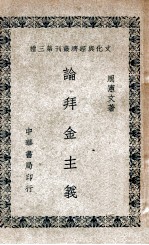 文化與經濟叢刊第三種
周憲文著
論拜金主義
中華書局印行